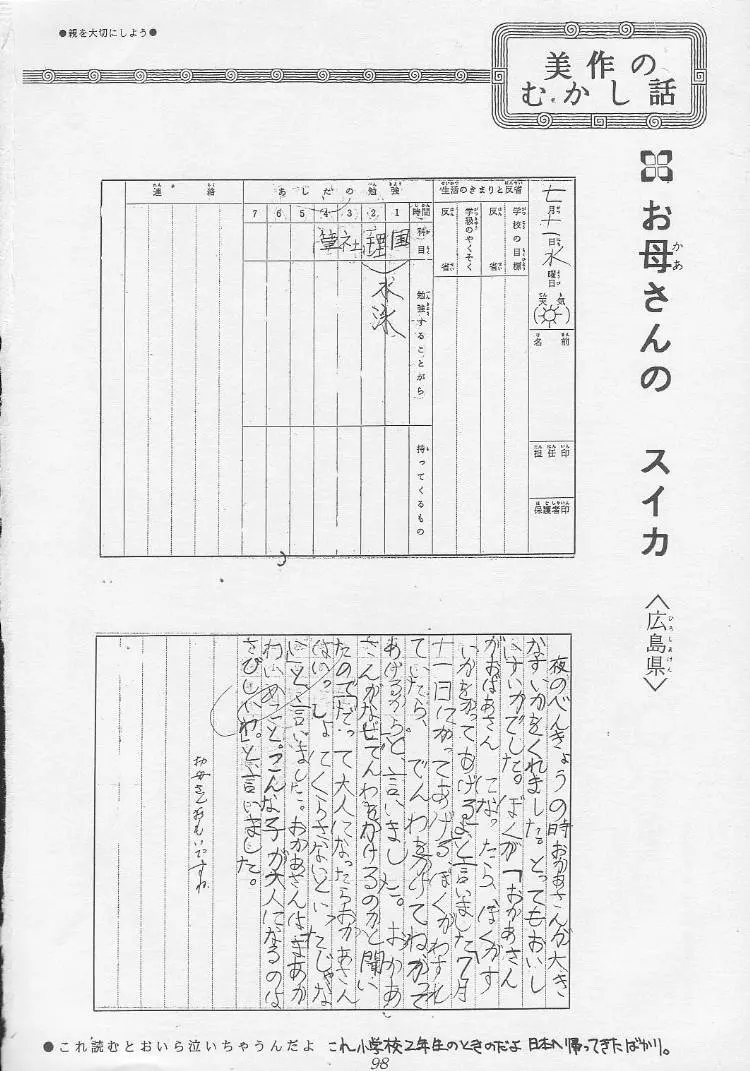 ●親を大切にしよう●
美作の
むかし話
お母さんの スイカ
〈広島県〉
七月十一日水曜日
天気
名前
担任印
保護者印
生活のきまりと反省
学校の目標
反省
学級のやくそく
反省
あしたの勉強
時間 1 2 3 4 5 6 7
科目 国 理 社 音
勉強することがら
水泳
持ってくるもの
連絡
夜のべんきょうの時おかあさんが大き
なすいかをくれました。とってもおいし
いすいかでした。ぼくが「おかあさん
がおばあさんになったら、ぼくがす
いかをかってあげるよと言いました7月
十一日にかってあげるぼくがわすれ
ていたら、でんわをかけてね、かって
あげるからと、言いました。おかあ
さんがなぜでんわをかけるのかと聞い
たので「だって大人になったらおかあさん
はいっしょにくらさないといったじゃな
い」と言いました。おかあさんは「まあか
わいいこと。こんな子が大人になるのは
さびしいわ。」と、言いました。
お母さんおもいですね
●これ読むとおいら泣いちゃうんだよ これ小学校2年生のときのだよ 日本へ帰ってきたばかり。
98